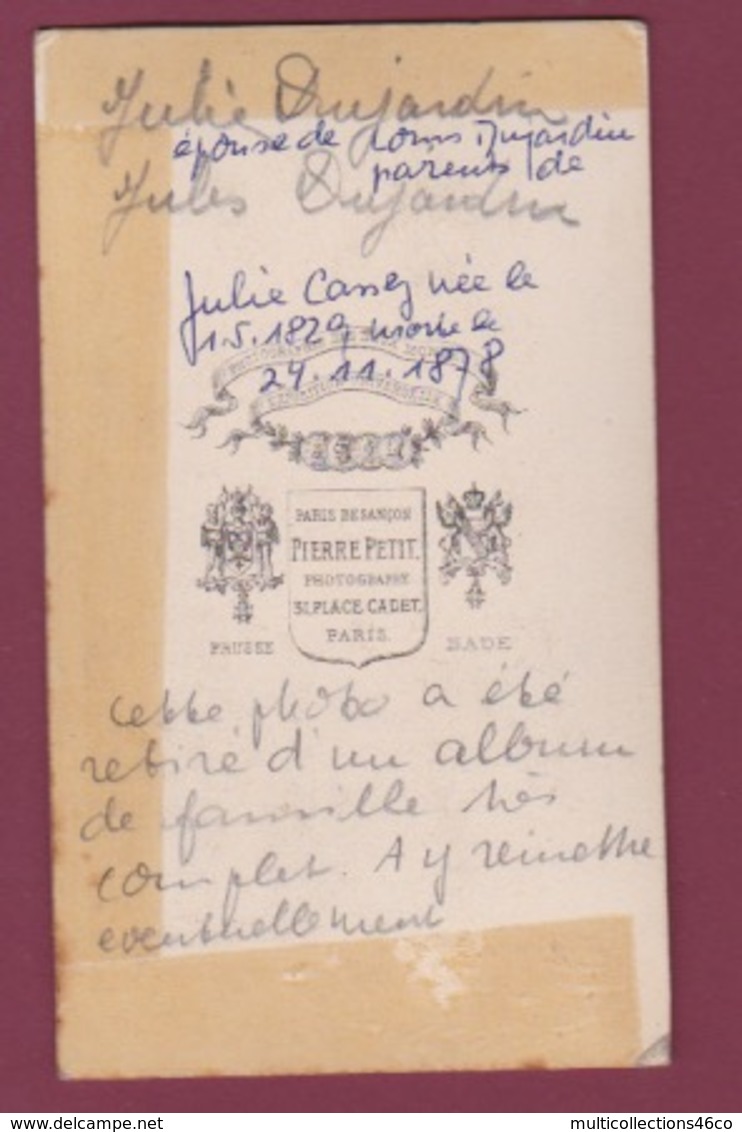 Julie Dujardin
épouse de Louis Dujardin
parents de
Jules Dujardin
Julie Cassez née le
1.5.1829, morte le
24.11.1878
PARIS BESANÇON
PIERRE PETIT.
PHOTOGRAPHE
31, PLACE CADET.
PARIS.
PRUSSE
BADE
cette photo a été
retiré d'un album
de famille très
complet. A y remettre
eventuellement
delcampe.net
multicollections46co